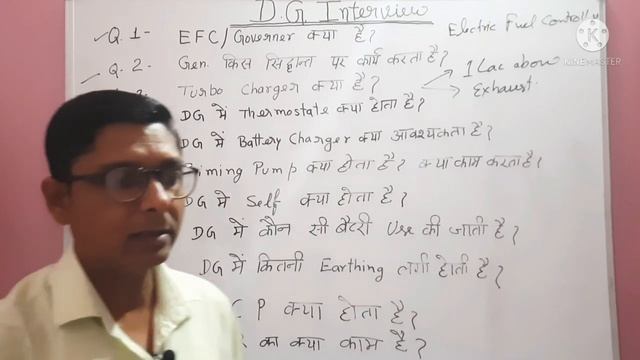 D.G. Interview
Q.1- EFC/Governer क्या है? Electric Fuel Controlly
Q.2- Gen. किस सिद्धान्त पर कार्य करता है?
Turbo Charger क्या है? 1 Lac above
Exhaust.
DG में Thermostate क्या होता है?
DG में Battery Charger क्या आवश्यकता है?
iming Pump क्या होता है? क्या काम करता है।
DG में Self क्या होता है?
DG में कौन सी बैटरी Use की जाती है?
DG में कितनी Earthing लगी होती है?
C P क्या होता है?
का क्या काम है?
K
KINEMASTER